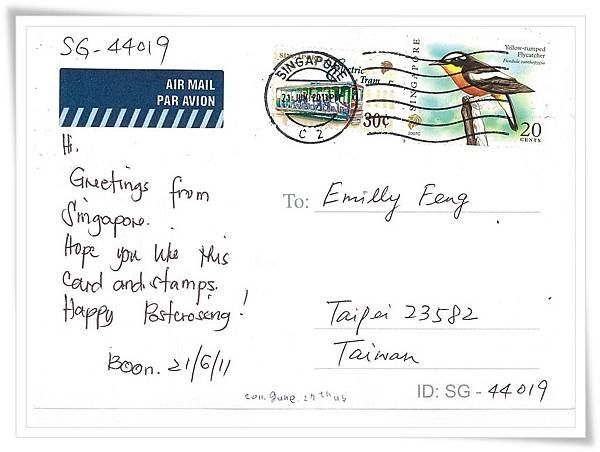 SG-44019
AIR MAIL
PAR AVION
SINGAPORE
SINGAPORE
Electric Tram
30¢
C 2
SINGAPORE
Yellow-rumped
Flycatcher
Ficedula zanthopygia
20
CENTS
2007C
Hi.
Greetings from
Singapore.
Hope you like this
card and stamps.
Happy Postcrossing!
Boon. 21/6/11
To: Emilly Feng
Taipei 23582
Taiwan
ID: SG - 44019